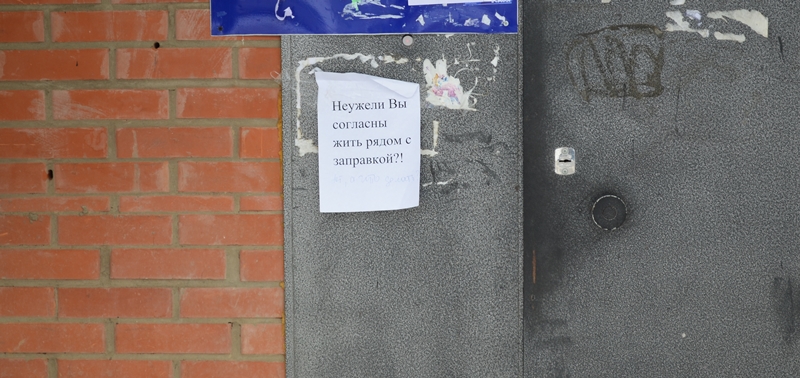 Неужели Вы
согласны
жить рядом с
заправкой?!